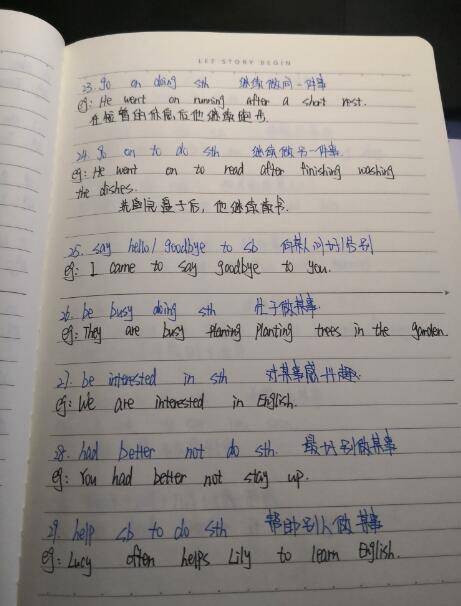 LET STORY BEGIN
23. go on doing sth 继续做同一件事
eg: He went on running after a short rest.
在短暂的休息后他继续跑步.
24. go on to do sth 继续做另一件事.
eg: He went on to read after finishing washing
the dishes.
洗完盘子后, 他继续读书.
25. say hello / goodbye to sb 向某人问好/告别
eg: I came to say goodbye to you.
26. be busy doing sth 忙于做某事.
eg: They are busy planing planting trees in the garden.
27. be interested in sth 对某事感兴趣.
eg: We are interested in English.
28. had better not do sth. 最好别做某事
eg: You had better not stay up.
29. help sb to do sth 帮助别人做某事
eg: Lucy often helps Lily to learn English.